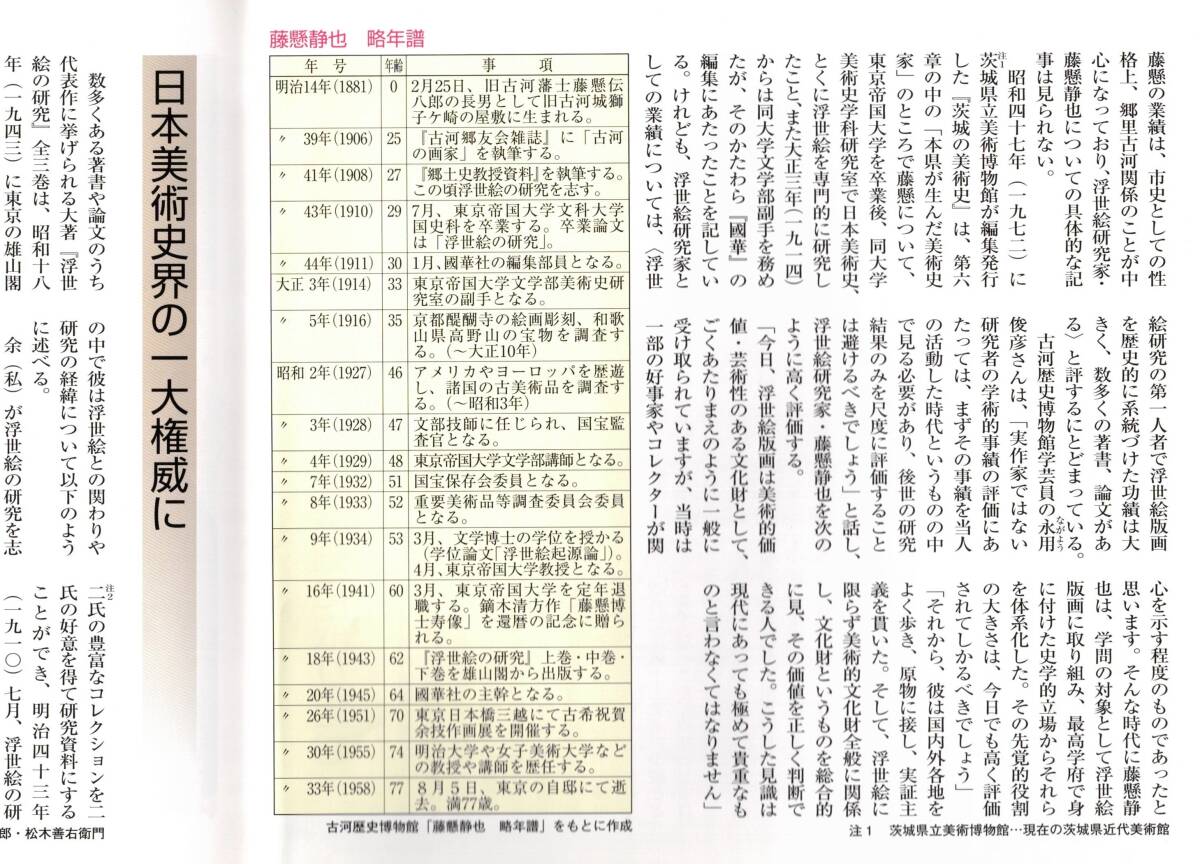 藤懸の業績は、市史としての性
格上、郷里古河関係のことが中
心になっており、浮世絵研究家・
藤懸静也についての具体的な記
事は見られない。
注1
昭和四十七年（一九七二）に
茨城県立美術博物館が編集発行
した『茨城の美術史』は、第六
章の中の「本県が生んだ美術史
家」のところで藤懸について、
東京帝国大学を卒業後、同大学
美術史学科研究室で日本美術史、
とくに浮世絵を専門的に研究し
たこと、また大正三年（一九一四）
からは同大学文学部副手を務め
たが、そのかたわら『國華』の
編集にあたったことを記してい
る。けれども、浮世絵研究家と
しての業績については、〈浮世
絵研究の第一人者で浮世絵版画
を歴史的に系統づけた功績は大
きく、数多くの著書、論文があ
る〉と評するにとどまっている。
古河歴史博物館学芸員の永用
ながよう
俊彦さんは、「実作家ではない
研究者の学術的事績の評価にあ
たっては、まずその事績を当人
の活動した時代というものの中
で見る必要があり、後世の研究
結果のみを尺度に評価すること
は避けるべきでしょう」と話し、
浮世絵研究家・藤懸静也を次の
ように高く評価する。
「今日、浮世絵版画は美術的価
値・芸術性のある文化財として、
ごくあたりまえのように一般に
受け取られていますが、当時は
一部の好事家やコレクターが関
心を示す程度のものであったと
思います。そんな時代に藤懸静
也は、学問の対象として浮世絵
版画に取り組み、最高学府で身
に付けた史学的立場からそれら
を体系化した。その先覚的役割
の大きさは、今日でも高く評価
されてしかるべきでしょう」
「それから、彼は国内外各地を
よく歩き、原物に接し、実証主
義を貫いた。そして、浮世絵に
限らず美術的文化財全般に関係
し、文化財というものを総合的
に見、その価値を正しく判断で
きる人でした。こうした見識は
現代にあっても極めて貴重なも
のと言わなくてはなりません」
注1　茨城県立美術博物館…現在の茨城県近代美術館
藤懸静也　略年譜
年号 年齢 事項
明治14年（1881） 0 2月25日、旧古河藩士藤懸伝
八郎の長男として旧古河城獅
子ケ崎の屋敷に生まれる。
〃 39年（1906） 25 『古河郷友会雑誌』に「古河
の画家」を執筆する。
〃 41年（1908） 27 『郷土史教授資料』を執筆する。
この頃浮世絵の研究を志す。
〃 43年（1910） 29 7月、東京帝国大学文科大学
国史科を卒業する。卒業論文
は「浮世絵の研究」。
〃 44年（1911） 30 1月、國華社の編集部員となる。
大正 3年（1914） 33 東京帝国大学文学部美術史研
究室の副手となる。
〃 5年（1916） 35 京都醍醐寺の絵画彫刻、和歌
山県高野山の宝物を調査す
る。（～大正10年）
昭和 2年（1927） 46 アメリカやヨーロッパを歴遊
し、諸国の古美術品を調査す
る。（～昭和3年）
〃 3年（1928） 47 文部技師に任じられ、国宝監
査官となる。
〃 4年（1929） 48 東京帝国大学文学部講師となる。
〃 7年（1932） 51 国宝保存会委員となる。
〃 8年（1933） 52 重要美術品等調査委員会委員
となる。
〃 9年（1934） 53 3月、文学博士の学位を授かる
（学位論文「浮世絵起源論」）。
4月、東京帝国大学教授となる。
〃 16年（1941） 60 3月、東京帝国大学を定年退
職する。鏑木清方作「藤懸博
士寿像」を還暦の記念に贈ら
れる。
〃 18年（1943） 62 『浮世絵の研究』上巻・中巻・
下巻を雄山閣から出版する。
〃 20年（1945） 64 國華社の主幹となる。
〃 26年（1951） 70 東京日本橋三越にて古希祝賀
余技作画展を開催する。
〃 30年（1955） 74 明治大学や女子美術大学など
の教授や講師を歴任する。
〃 33年（1958） 77 8月5日、東京の自邸にて逝
去。満77歳。
古河歴史博物館「藤懸静也　略年譜」をもとに作成
日本美術史界の一大権威に
数多くある著書や論文のうち
代表作に挙げられる大著『浮世
絵の研究』全三巻は、昭和十八
年（一九四三）に東京の雄山閣
の中で彼は浮世絵との関わりや
研究の経緯について以下のよう
に述べる。
余（私）が浮世絵の研究を志
注2
二氏の豊富なコレクションを二
氏の好意を得て研究資料にする
ことができ、明治四十三年
（一九一〇）七月、浮世絵の研
郎・松木善右衛門